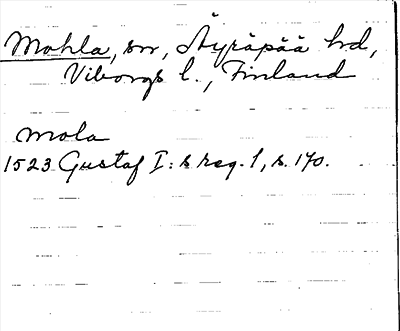 Mohla, sn, Äyräpää hd,
Viborgs l., Finland
Mola
1523 Gustaf I:s reg. 1, s. 170.